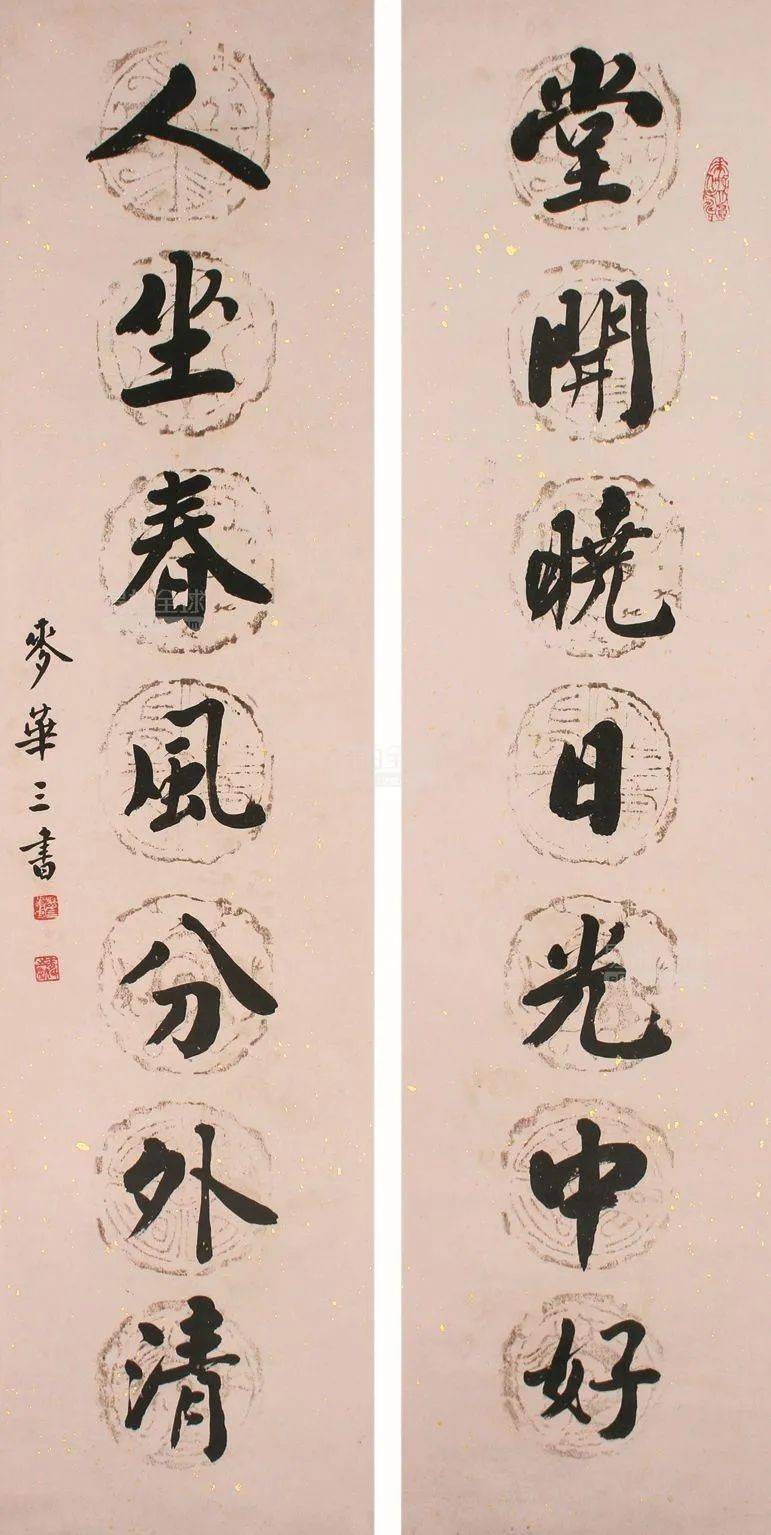 堂開曉日光中好
人坐春風分外清
麥華三書